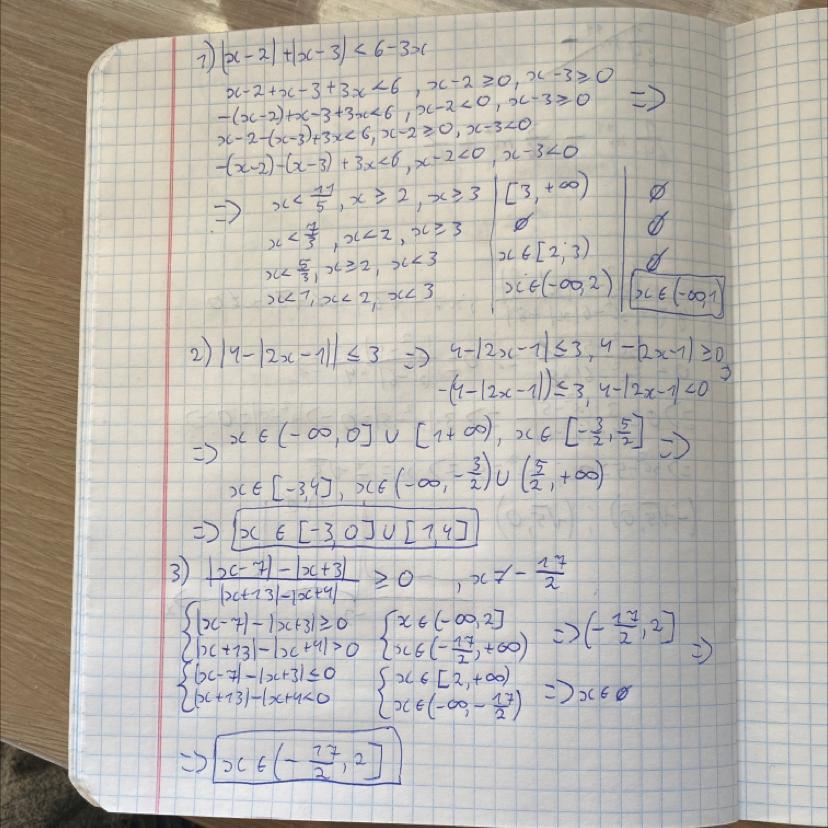 1) |x-2|+|x-3|<6-3x
x-2+x-3+3x<6, x-2≥0, x-3≥0
-(x-2)+x-3+3x<6, x-2<0, x-3≥0 =>
x-2-(x-3)+3x<6, x-2≥0, x-3<0
-(x-2)-(x-3)+3x<6, x-2<0, x-3<0
=> x<11/5, x≥2, x≥3 | [3,+∞) | ∅
x<7/3, x<2, x≥3 | ∅ | ∅
x<5/3, x≥2, x<3 | x∈[2;3) | ∅
x<1, x<2, x<3 | x∈(-∞,2) | x∈(-∞,1)
2) |4-|2x-1||≤3 => 4-|2x-1|≤3, 4-|2x-1|≥0
-(4-|2x-1|)≤3, 4-|2x-1|<0 =>
=> x∈(-∞,0]∪[1+∞), x∈[-3/2,5/2] =>
x∈[-3,4], x∈(-∞,-3/2)∪(5/2,+∞)
=> x∈[-3,0]∪[1,4]
3) |x-7|-|x+3| / |x+13|-|x+4| ≥0, x≠-17/2
{|x-7|-|x+3|≥0 {x∈(-∞,2]
{|x+13|-|x+4|>0 {x∈(-17/2,+∞) => (-17/2,2] =>
{|x-7|-|x+3|≤0 {x∈[2,+∞)
{|x+13|-|x+4<0 {x∈(-∞,-17/2) => x∈∅
=> x∈(-17/2,2]